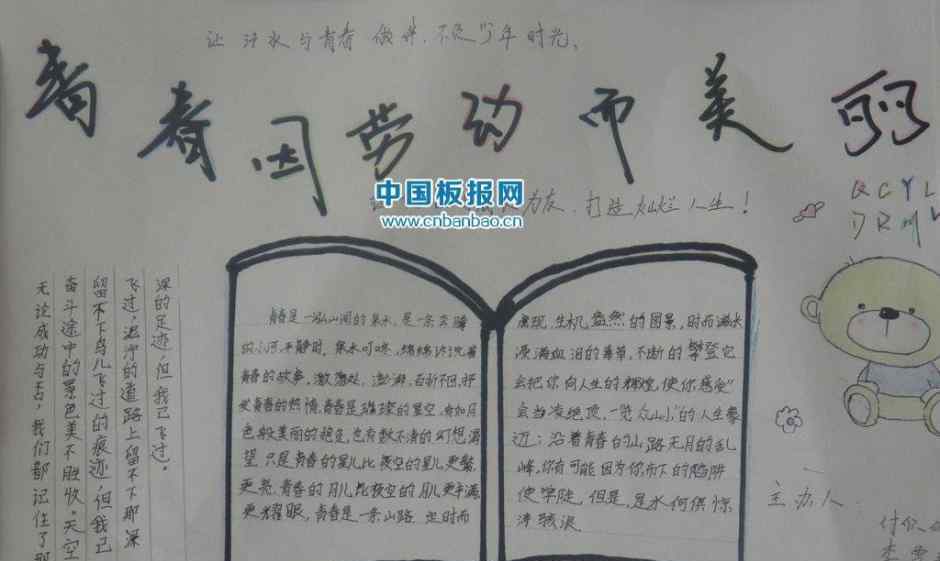 让汗水与青春做伴,不负少年时光。
青春因劳动而美丽
中国板报网
www.cnbanbao.cn
为友,打造灿烂人生!
Q C Y L
D R M
无论成功与否,我们都记住了那
奋斗途中的景色美不胜收。天空
留不下鸟儿飞过的痕迹,但我已
飞过,泥泞的道路上留不下那深
深的足迹,但我已飞过。
青春是一泓山涧的泉水,是一条
的小河,平静时,泉水叮咚,绵绵诉说着
青春的故事,激荡处,澎湃,百折不回,抒
发青春的热情,青春是璀璨的星空,有如月
色般美丽的艳色,也有数不清的幻想渴
望,只是青春的星儿比夜空的星儿更繁,
更亮,青春的月儿比夜空的月儿更丰满,
更耀眼,青春是一条山路,走时而
展现生机盎然的图景,时而滿长
浸满血泪的毒草,不断的攀登它
会把你向人生的辉煌,使你感受"
会当凌绝顶,一览众山小"的人生豪
迈;沿着青春的山路无月的乱
峰,你有可能因为你布下的陷阱
使学陡,但是,是水何惧惊
涛骇浪
主办人